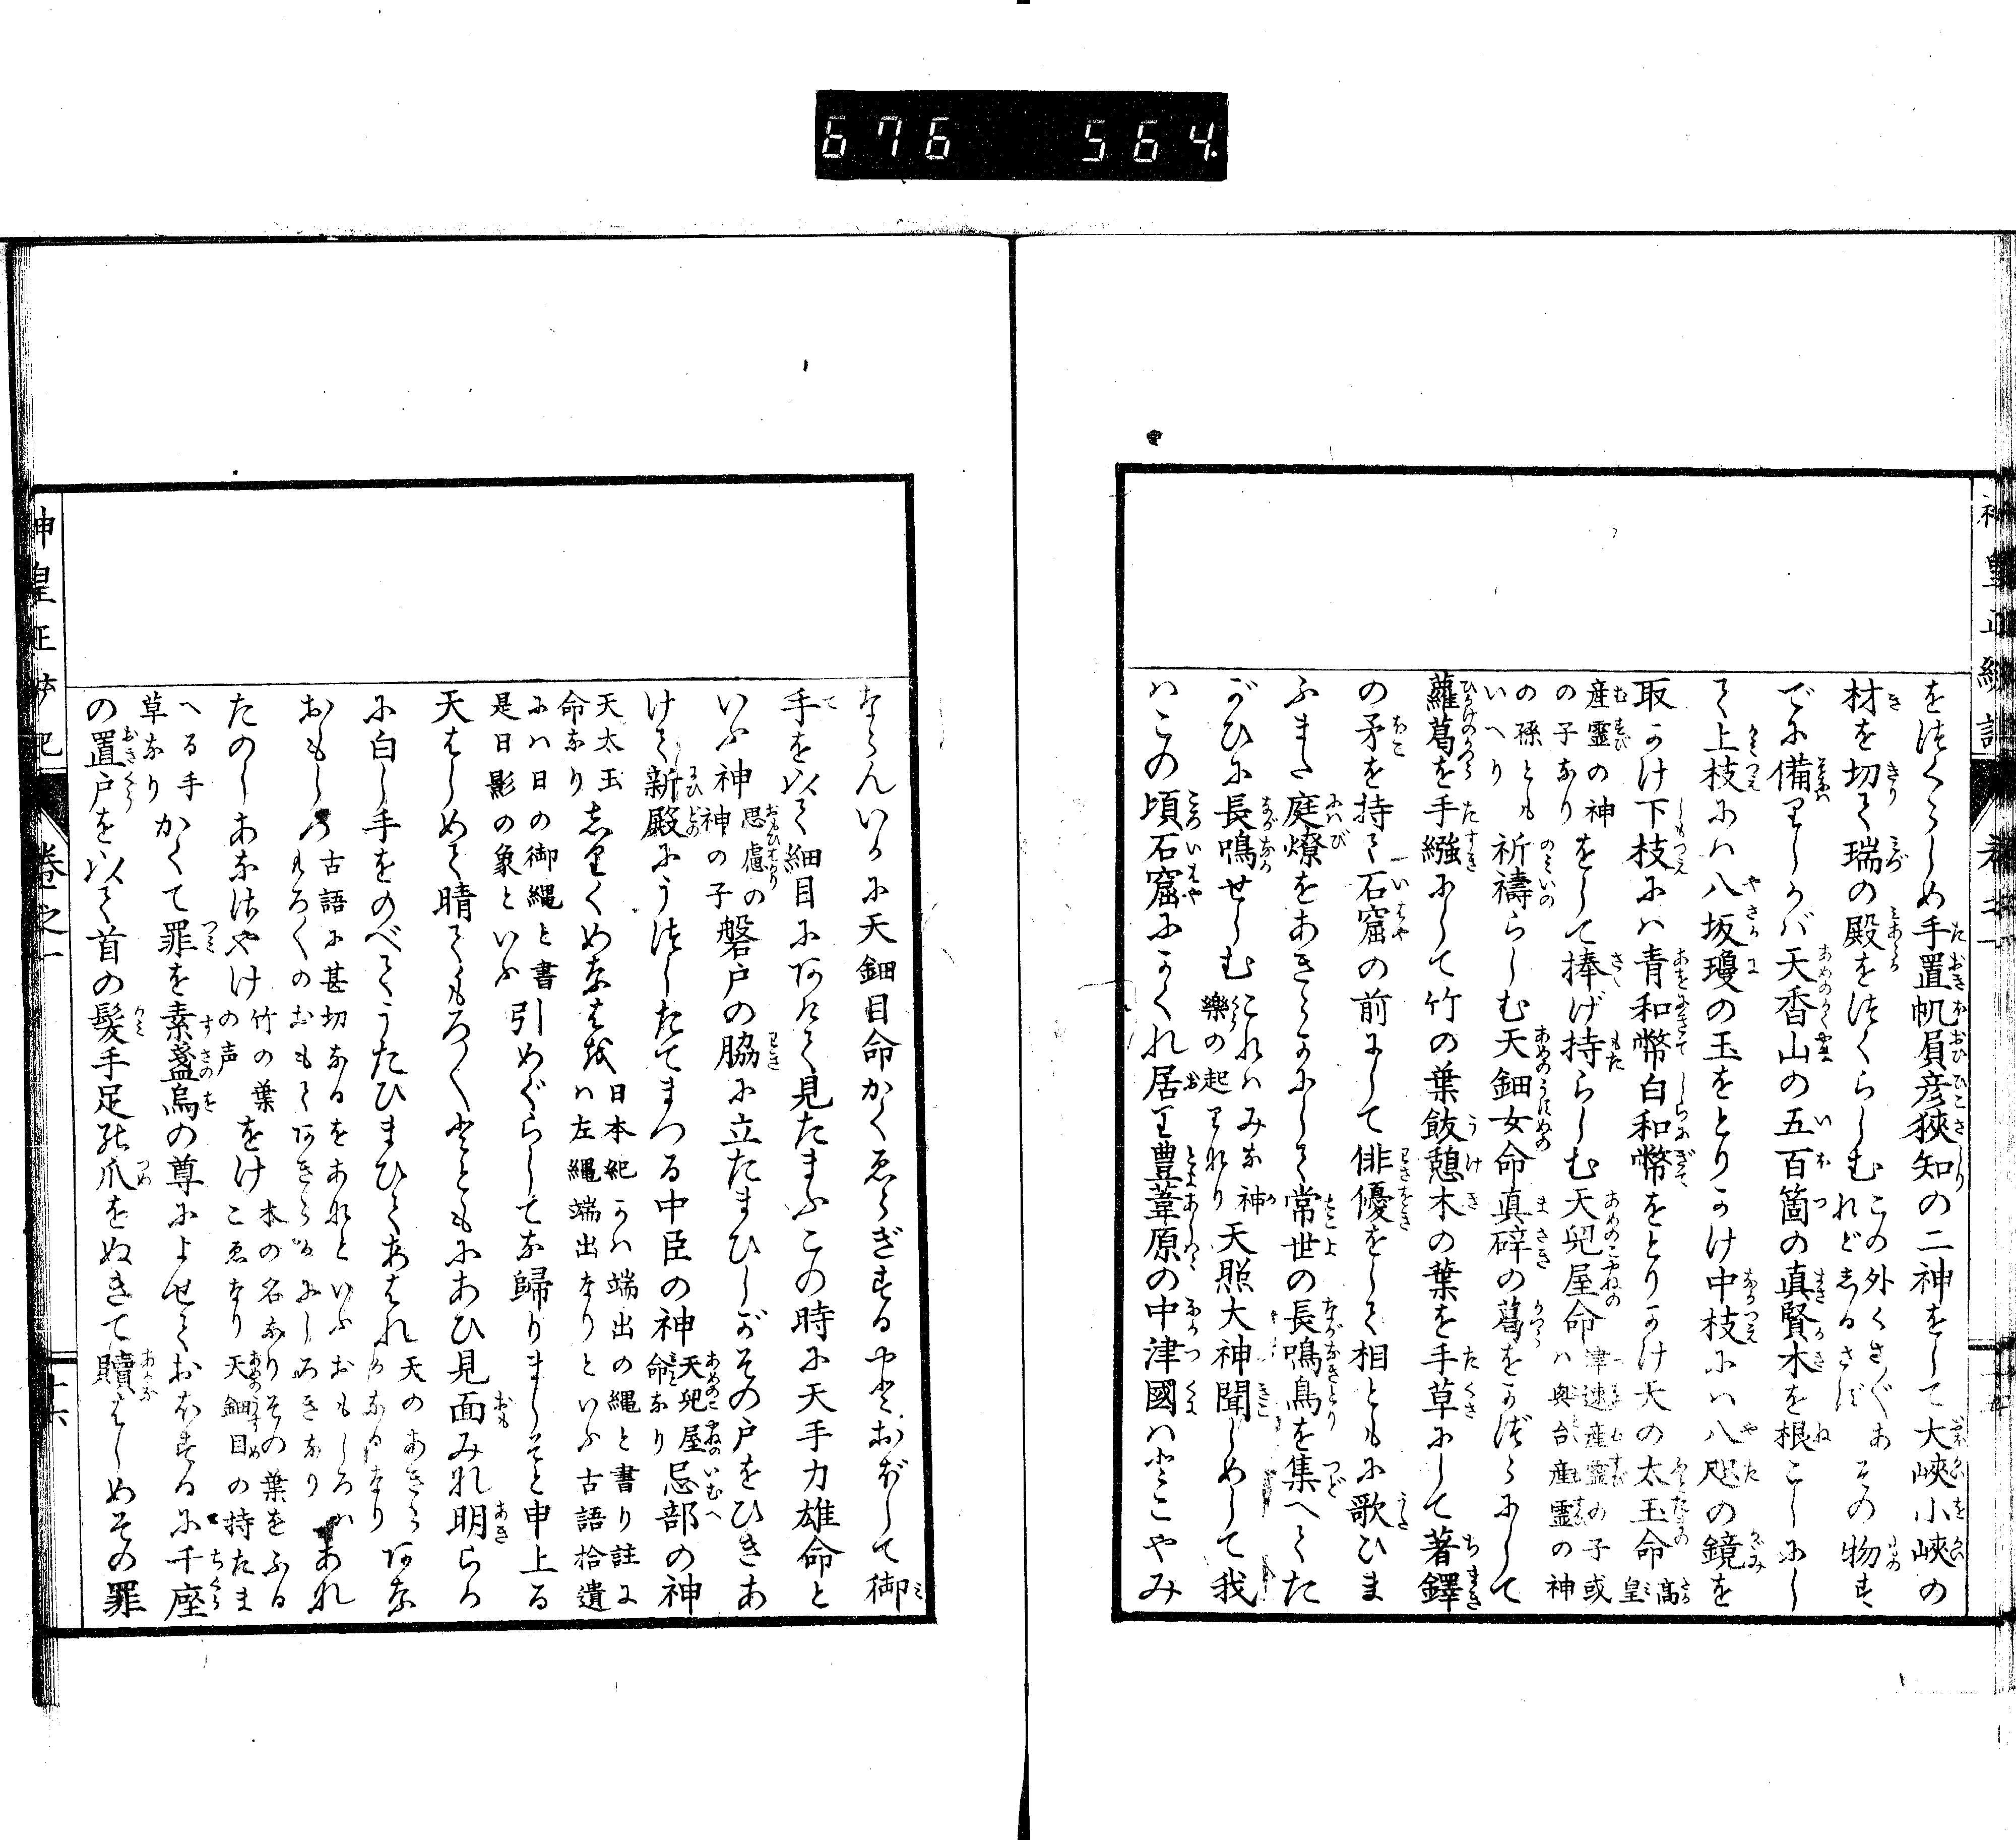 676 564.
神皇正統記 巻之一 十五
をつくらしめ手置帆負彦狹知の二神をして大峽小峽の
材を切て瑞の殿をつくらしむ この外くさ〴〵あれどしるさず その物す
でに備りしかバ天香山の五百箇の真賢木を根こしにし
て上枝にハ八坂瓊の玉をとりかけ中枝にハ八咫の鏡を
取かけ下枝にハ青和幣白和幣をとりかけ天の太玉命 高皇
産霊の神の子なり をして捧げ持らしむ天兒屋命 津速産霊の子或ハ與台産霊の神
の孫ともいへり 祈禱らしむ天鈿女命真碎の葛をかづらにして
蘿葛を手繦にして竹の葉飫憩木の葉を手草にして著鐸
の矛を持て石窟の前にして俳優をして相ともに歌ひま
ふまた庭燎をあきらかにして常世の長鳴鳥を集へてた
がひに長鳴せしむ これハみな神樂の起りなり 天照大神聞しめして我
ハこの頃石窟にかくれ居り豊葦原の中津國ハとこやみ
ならんいかに天鈿目命かくゑらぎするやとおぼして御
手を以て細目にあけて見たまふこの時に天手力雄命と
いふ神 思慮の神の子 磐戸の脇に立たまひしがその戸をひきあ
けて新殿にうつしたてまつる中臣の神 天兒屋命なり 忌部の神
天太玉命なり しりくめなはを 日本紀にハ端出の縄と書り註にハ左縄端出なりといふ古語拾遺
にハ日の御縄と書是日影の象といふ 引めぐらしてな歸りましそと申上る
天はじめて晴てもろ〳〵ともにあひ見面みな明らか
に白し手をのべてうたひまひてあはれ 天のあきらかなるなり あな
おもしろ 古語に甚切なるをあなといふおもしろハもろ〳〵のおもてあきらかにしろきなり あれ
たのしあなさやけ 竹の葉の声 をけ 木の名なりその葉をふるこゑなり 天鈿目の持たま
へる手草なり かくて罪を素盞烏の尊によせておほするに千座
の置戸を以て首の髮手足の爪をぬきて贖はしめその罪
神皇正統記 巻之一 十六